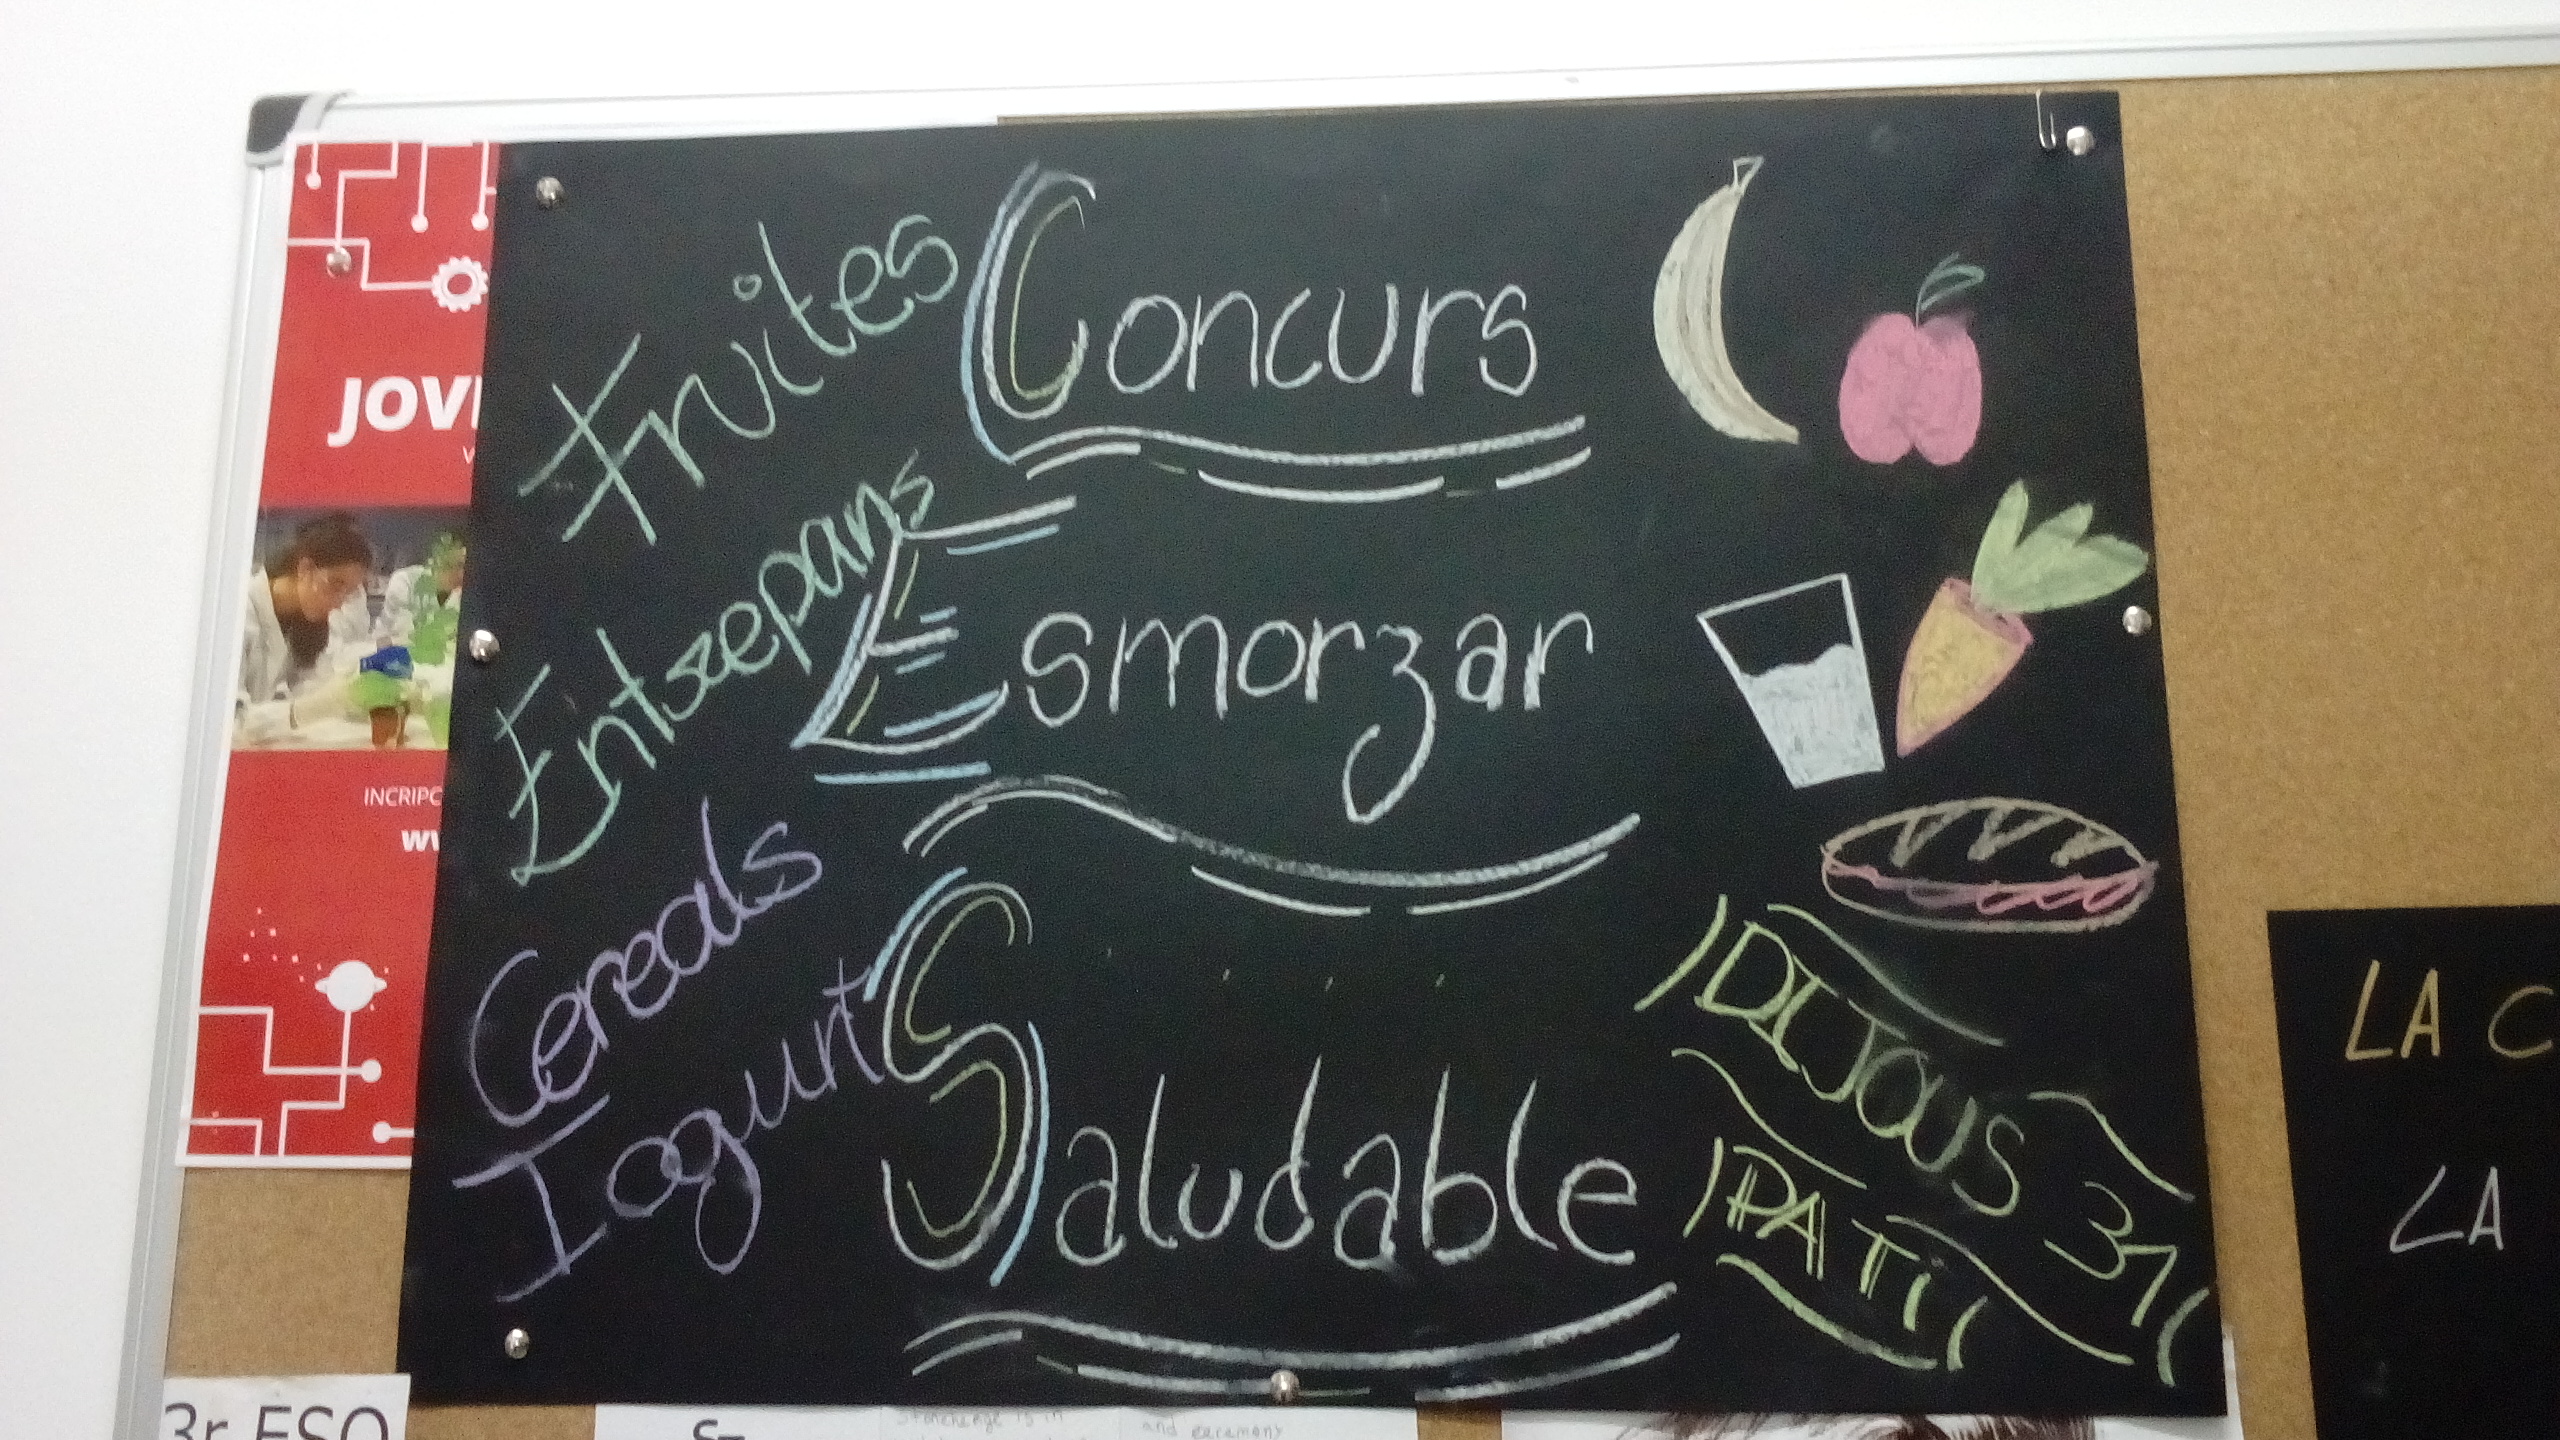 Concurs
Esmorzar
Saludable
Fruites
Entsepans
Cereals
Iogurt
DIJOUS 31
PATI
JOV
INCRIPC
ww
LA C
LA
3r ESO
Stonehenge is in
and ceremony